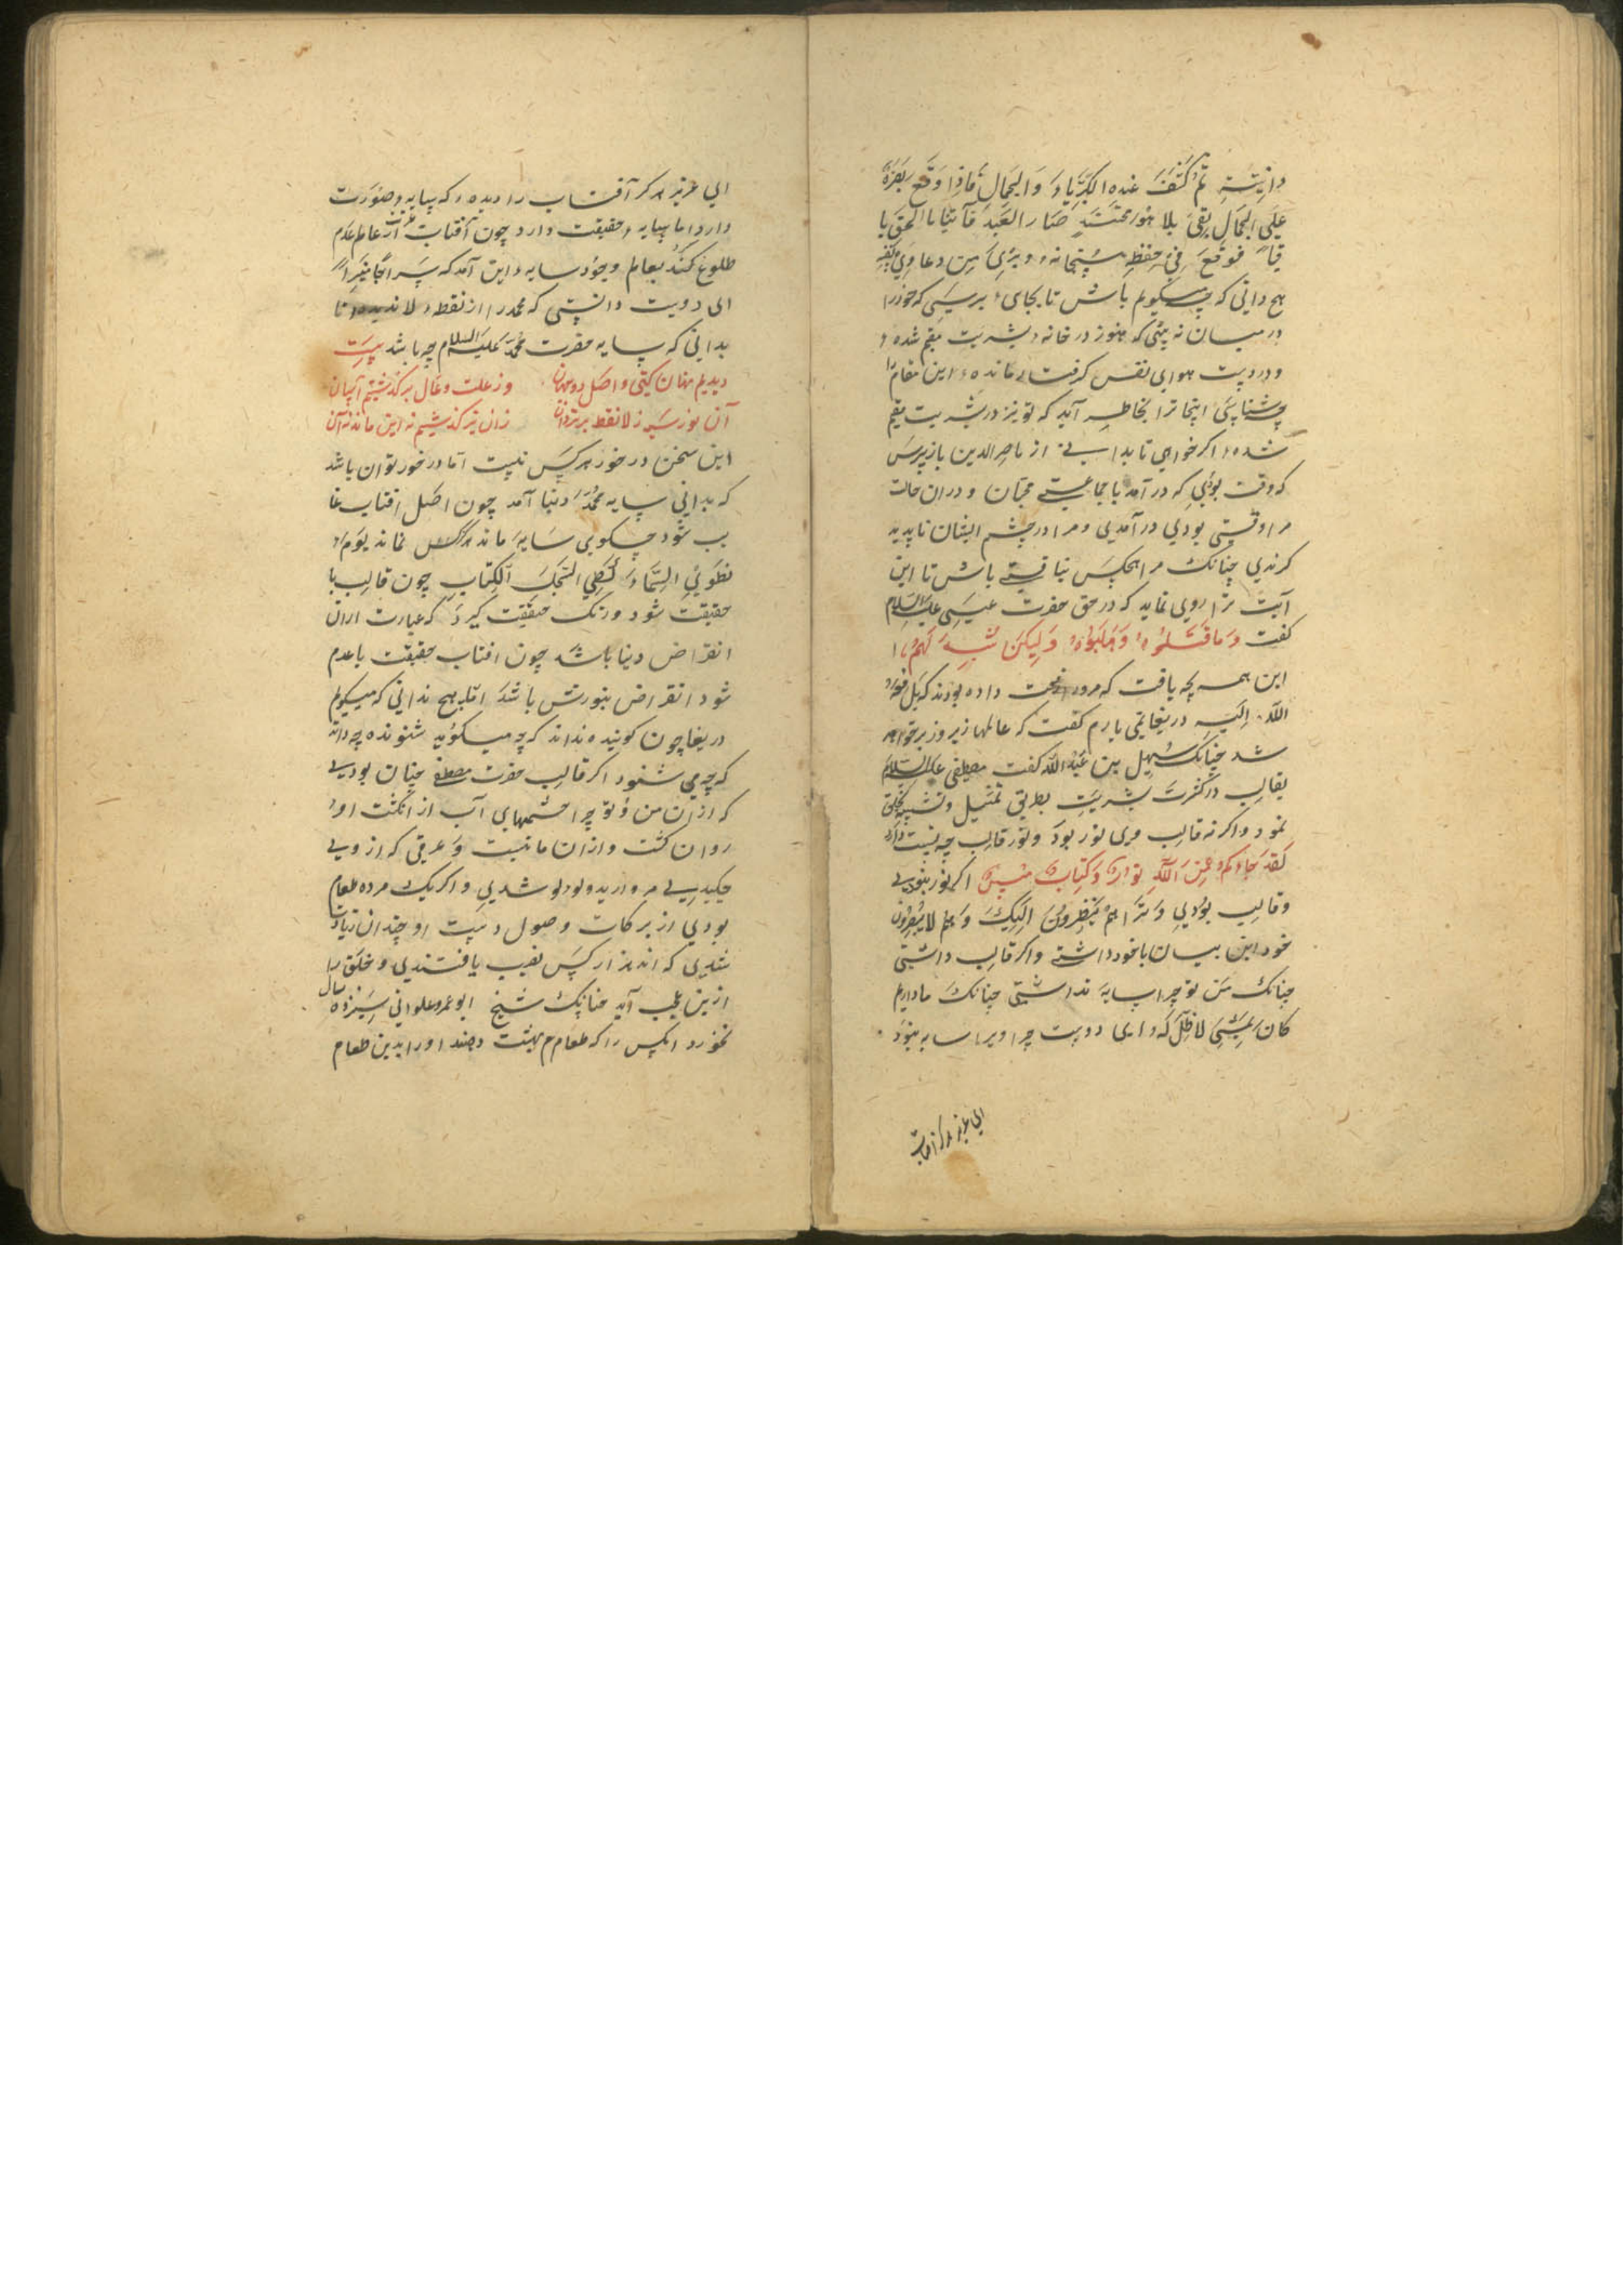 دانیته ثم کشف عنده الکبریاء و الجمال فاذا وقع بصره
علی الجمال بقی بلا هو فحینئذ صار العبد فانیا بالحق با
قیا فوقع فی حفظه سبحانه و بری من دعاوی نفسه
هیچ دانی که چه میکویم باش تا بجای برسی که خود را
در میان نه بینی که هنوز در خانه بشریت مقیم شده
و در دست هوای نفس کرفتار مانده این مقام را
چه شناسی اینجا ترا بخاطر آید که تو نیز در بشریت مقیم
شده اکر خواهی تا بدانی از ناصر الدین بازپرس
که وقت بودی که در آمد با جماعتی محبان و دران حالت
مرا وقتی بودی در آمدی و مرا در چشم ایشان ناپدید
کرندی چنانک مرا هیچکس نیافتی باش تا این
آیت ترا روی نماید که در حق حضرت عیسی علیه السلام
کفت و ما قتلوه و ما صلبوه و لیکن شبه لهم
این همه چه یافت که مرورا نحت داده بودند که بل رفعه
الله الیه دریغا نمی یارم کفت که عالمها زیر و زبر خواهد
شد چنانک سهیل بن عبد الله کفت مصطفی علیه السلام
بقالب و کثرت بشریت بطریق تمثیل و تشبیه بخلق
نمود و اکر نه قالب وی نور بود و نور قالب چه نسبت دارد
لقد جاءکم من الله نور و کتاب مبین اکر نور نبودی
و قالب بودی و تراهم ینظرون الیک و هم لا یبصرون
خود این بیان با خود داشتی و اکر قالب داشتی
چنانک من و تو چرا سایه نداشتی چنانک ما داریم
کان یمشی لا ظل له ای دوست چرا ویرا سایه نبود
ای عزیز هرکز آفتاب
ای عزیز هرکز آفتاب را دیده که سایه و صورت
دارد اما سایه حقیقت دارد چون آفتاب عزت از عالم عدم
طلوع کند بعالم وجود سایه او این آمد که سراجا منیرا
ای دوست دانستی که محمد را از نقطه لا ندیده تا
بدانی که سایه حضرت محمد علیه السلام چه باشد بیت
دیدیم نهان کیتی و اصل دو جهان وز علت و عال برکذشتیم آسان
آن نور سیه ز لا نقط برتر دان زان نیز کذشتیم نه این ماند نه آن
این سخن در خور هر کس نیست اما در خور توان باشد
که بدانی سایه محمد دنیا آمد چون اصل افتاب غا
یب شود چکویی سایه ماند هرکز نماند یوم
نطوی السماء کطی السجل للکتاب چون قالب با
حقیقت شود و رنک حقیقت کیرد که عبارت ازان
انقراض دنیا باشد چون افتاب حقیقت با عدم
شود انقراض نبورتش باشد اما هیچ ندانی که میکویم
دریغا چون کوینده نداند که چه میکوید شنونده چه داند
که چه می شنود اکر قالب حضرت مصطفی چنان بودی
که ازان من و تو چرا چشمهای آب از انکشت او
روان کشت و ازان ما نیست و عرقی که از ویی
چکیدیی مروارید و لولو شدیی و اکر یک مرده طعام
بودی از برکات وصول دست او چندان زیادت
شدیی که اند هزار کس نصیب یافتندی و خلق را
ازین عجب آید چنانک شیخ ابو عمرو علوانی سیزده سال
نخورد انکس را که طعام بهشت دهند او را بدین طعام